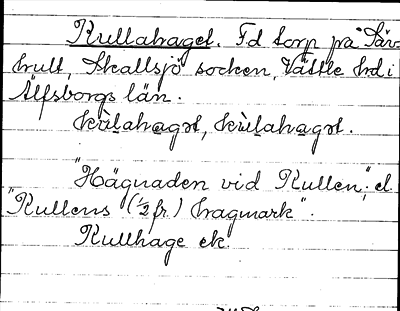 Kullahaget. Fd torp på Säv-
hult, Skallsjö socken, Vättle hd i
Älfsborgs län.
kùḷahagət, kùḷahagət.
"Hägnaden vid Kullen", el.
"Kullens (1/2 fr) hagmark".
Kullhage ek.